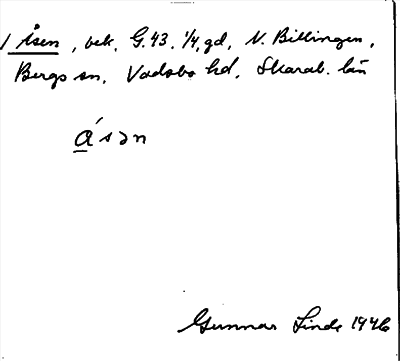 1 Åsen, bek. G. 43. 1/4, gd, N. Billingen,
Bergs sn, Vadsbo hd. Skarab. län
a´sən
Gunnar Linde 1946